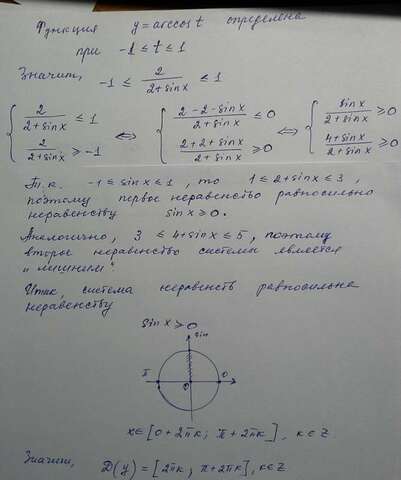 Функция y = arccos t определена
при -1 ≤ t ≤ 1
Значит, -1 ≤ 2/(2+sinx) ≤ 1
{ 2/(2+sinx) ≤ 1 ⇔ { (2-2-sinx)/(2+sinx) ≤ 0 ⇔ { sinx/(2+sinx) ≥ 0
2/(2+sinx) ≥ -1 (2+2+sinx)/(2+sinx) ≥ 0 (4+sinx)/(2+sinx) ≥ 0
Т.к. -1 ≤ sinx ≤ 1, то 1 ≤ 2+sinx ≤ 3,
поэтому первое неравенство равносильно
неравенству sinx ≥ 0.
Аналогично, 3 ≤ 4+sinx ≤ 5, поэтому
второе неравенство системы является
"лишним".
Итак, система неравенств равносильна
неравенству
sinx ≥ 0
sin
π 0 0
x ∈ [0+2πk; π+2πk], k ∈ Z
Значит, D(y) = [2πk; π+2πk], k ∈ Z